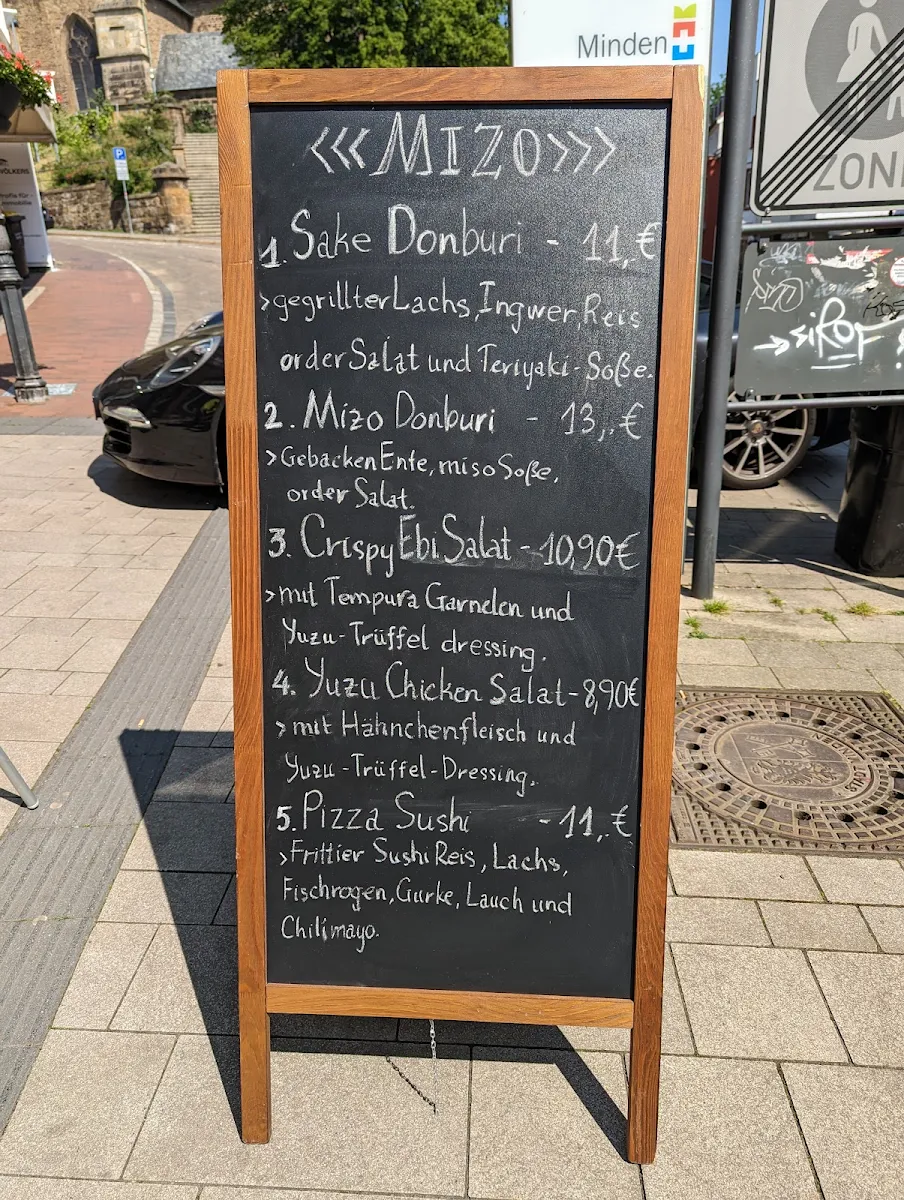 Minden
ZONE
VÖLKERS
P
<<<MIZO>>>
1. Sake Donburi - 11,.€
>gegrillter Lachs, Ingwer, Reis
order Salat und Teriyaki-Soße.
2. Mizo Donburi - 13,.€
>Gebacken Ente, miso Soße,
order Salat.
3. Crispy Ebi Salat - 10,90€
>mit Tempura Garnelen und
Yuzu-Trüffel dressing.
4. Yuzu Chicken Salat - 8,90€
>mit Hähnchenfleisch und
Yuzu-Trüffel-Dressing.
5. Pizza Sushi - 11,.€
>Frittier Sushi Reis, Lachs,
Fischrogen, Gurke, Lauch und
Chilimayo.